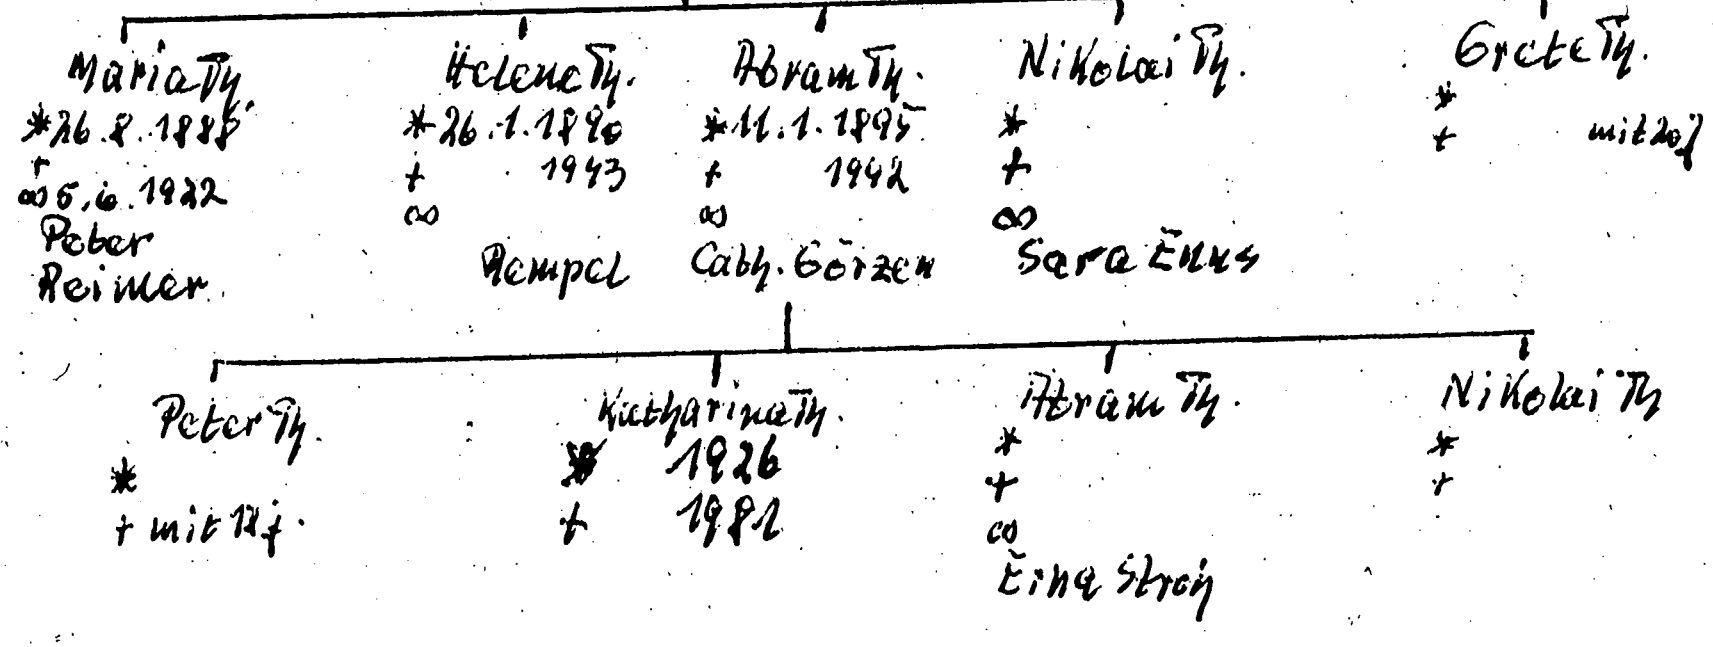 Maria Th.
* 26.8.1888
+
∞ 5.6.1922
Peter
Reimer.
Helene Th.
* 26.1.1890
+ 1943
∞
Rempel
Abram Th.
* 11.1.1895
+ 1942
∞
Cath. Görzen
Nikolai Th.
*
+
∞
Sara Enns
Grete Th.
*
+ mit 20 j
Peter Th.
*
+ mit 18 j.
Katharina Th.
* 1926
+ 1981
Abram Th.
*
+
∞
Nikolai Th
*
+